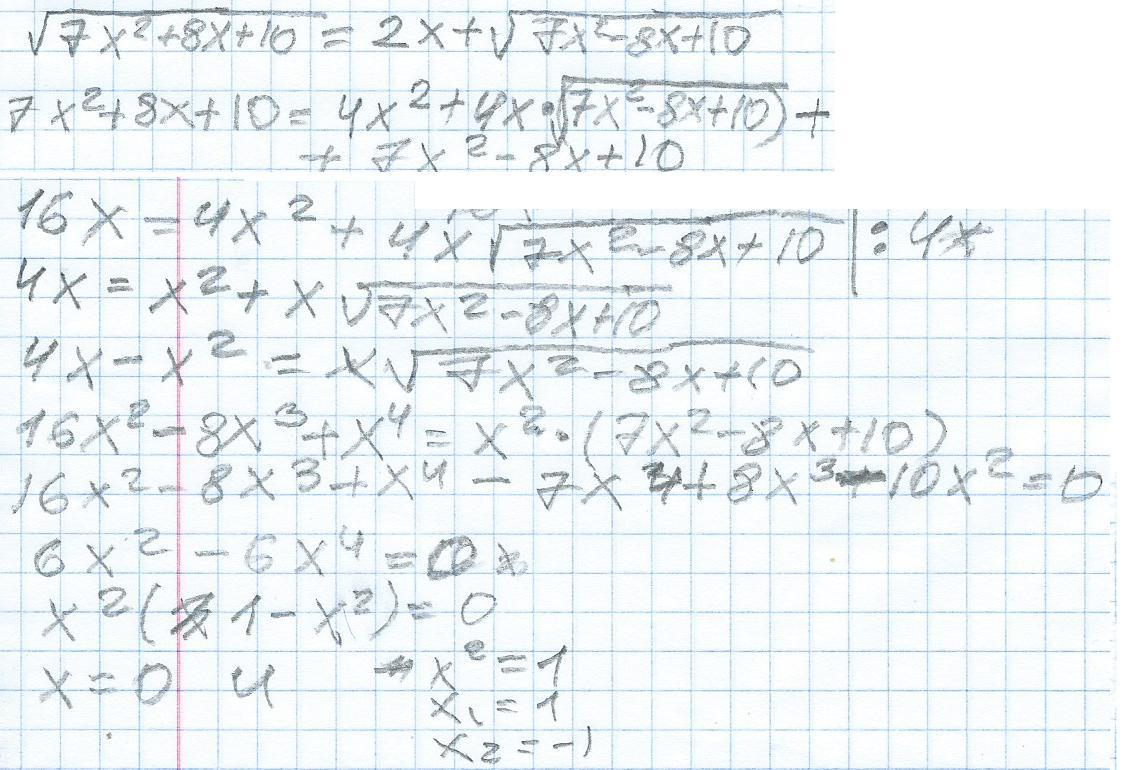 √(7x²+8x+10) = 2x+√(7x²-8x+10)
7x²+8x+10 = 4x²+4x·√(7x²-8x+10) +
+ 7x²-8x+10
16x = 4x² + 4x√(7x²-8x+10) | : 4x
4x = x² + x√(7x²-8x+10)
4x - x² = x√(7x²-8x+10)
16x² - 8x³ + x⁴ = x²·(7x²-8x+10)
16x² - 8x³ + x⁴ - 7x⁴ + 8x³ - 10x² = 0
6x² - 6x⁴ = 0
x²(1 - x²) = 0
x = 0 и x² = 1
x₁ = 1
x₂ = -1